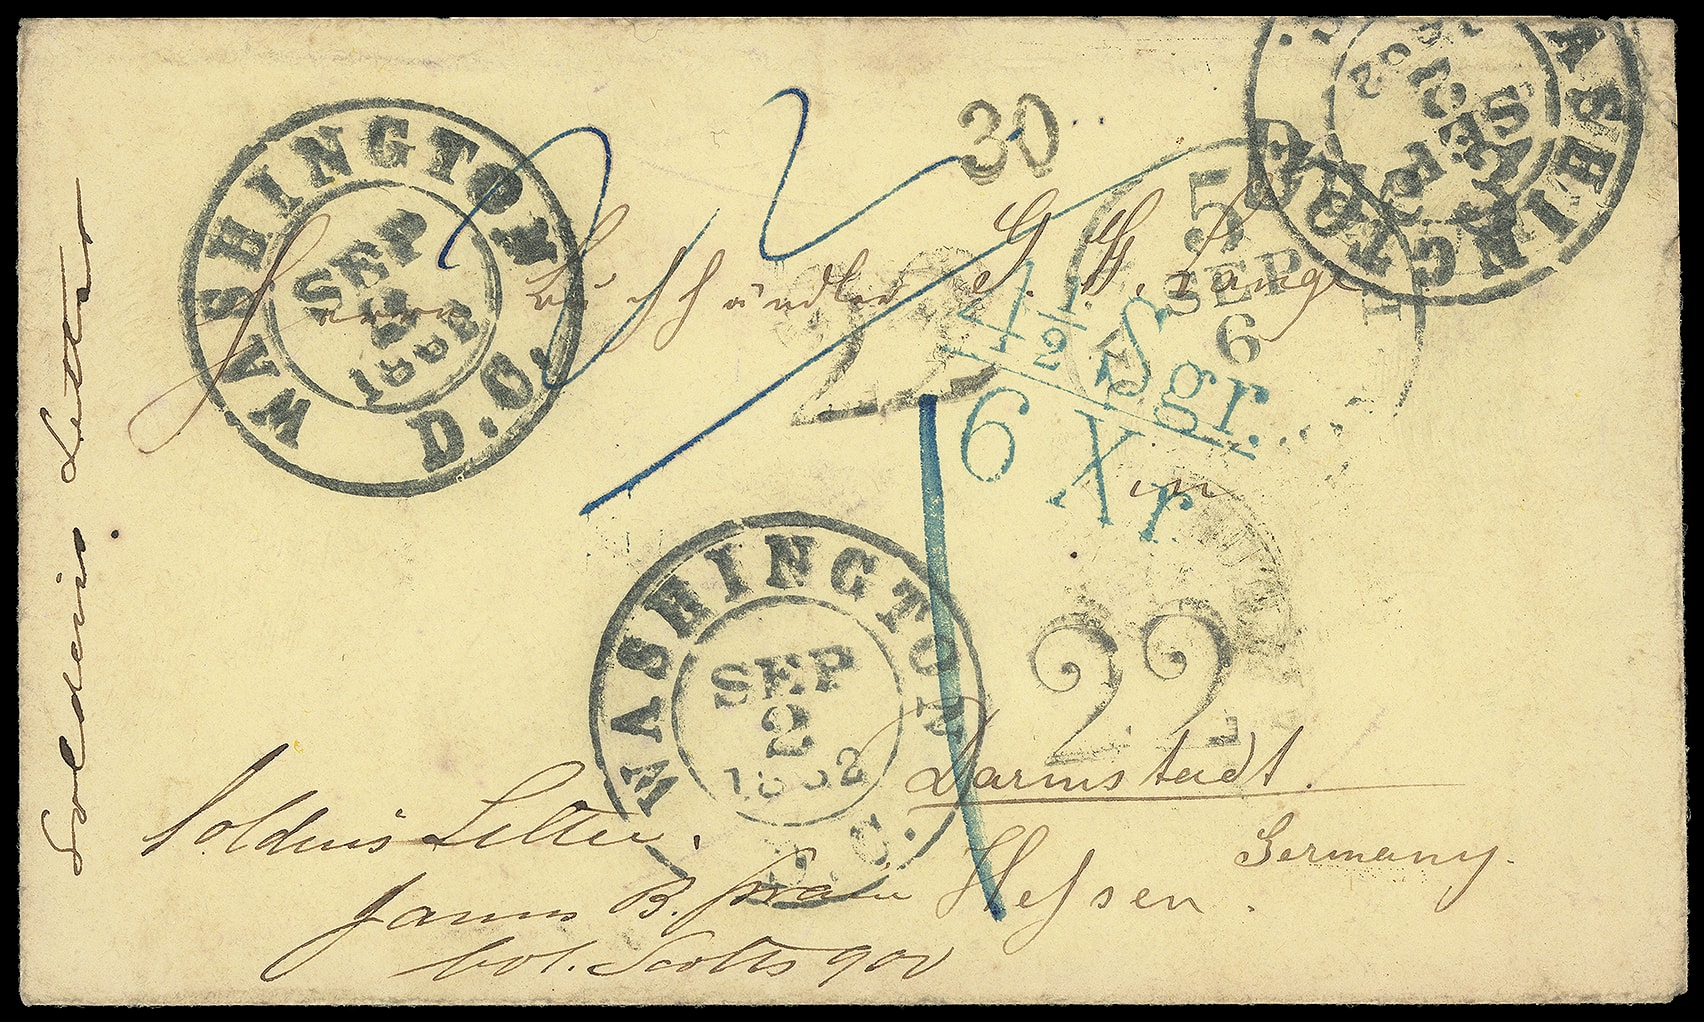 WASHINGTON D.C.
SEP
2
1862
30
WASHINGTON D.
SEP
2
1862
5
SEP
6
22
Herrn Buchhändler G. G. Lange
4 1/2 Sgr.
6 Xr
in
WASHINGTON D.C.
SEP
2
1862
22
Darmstadt.
Hessen.
Germany.
Soldiers Letter
Soldiers Letter.
James B.
Col. Scotts 900